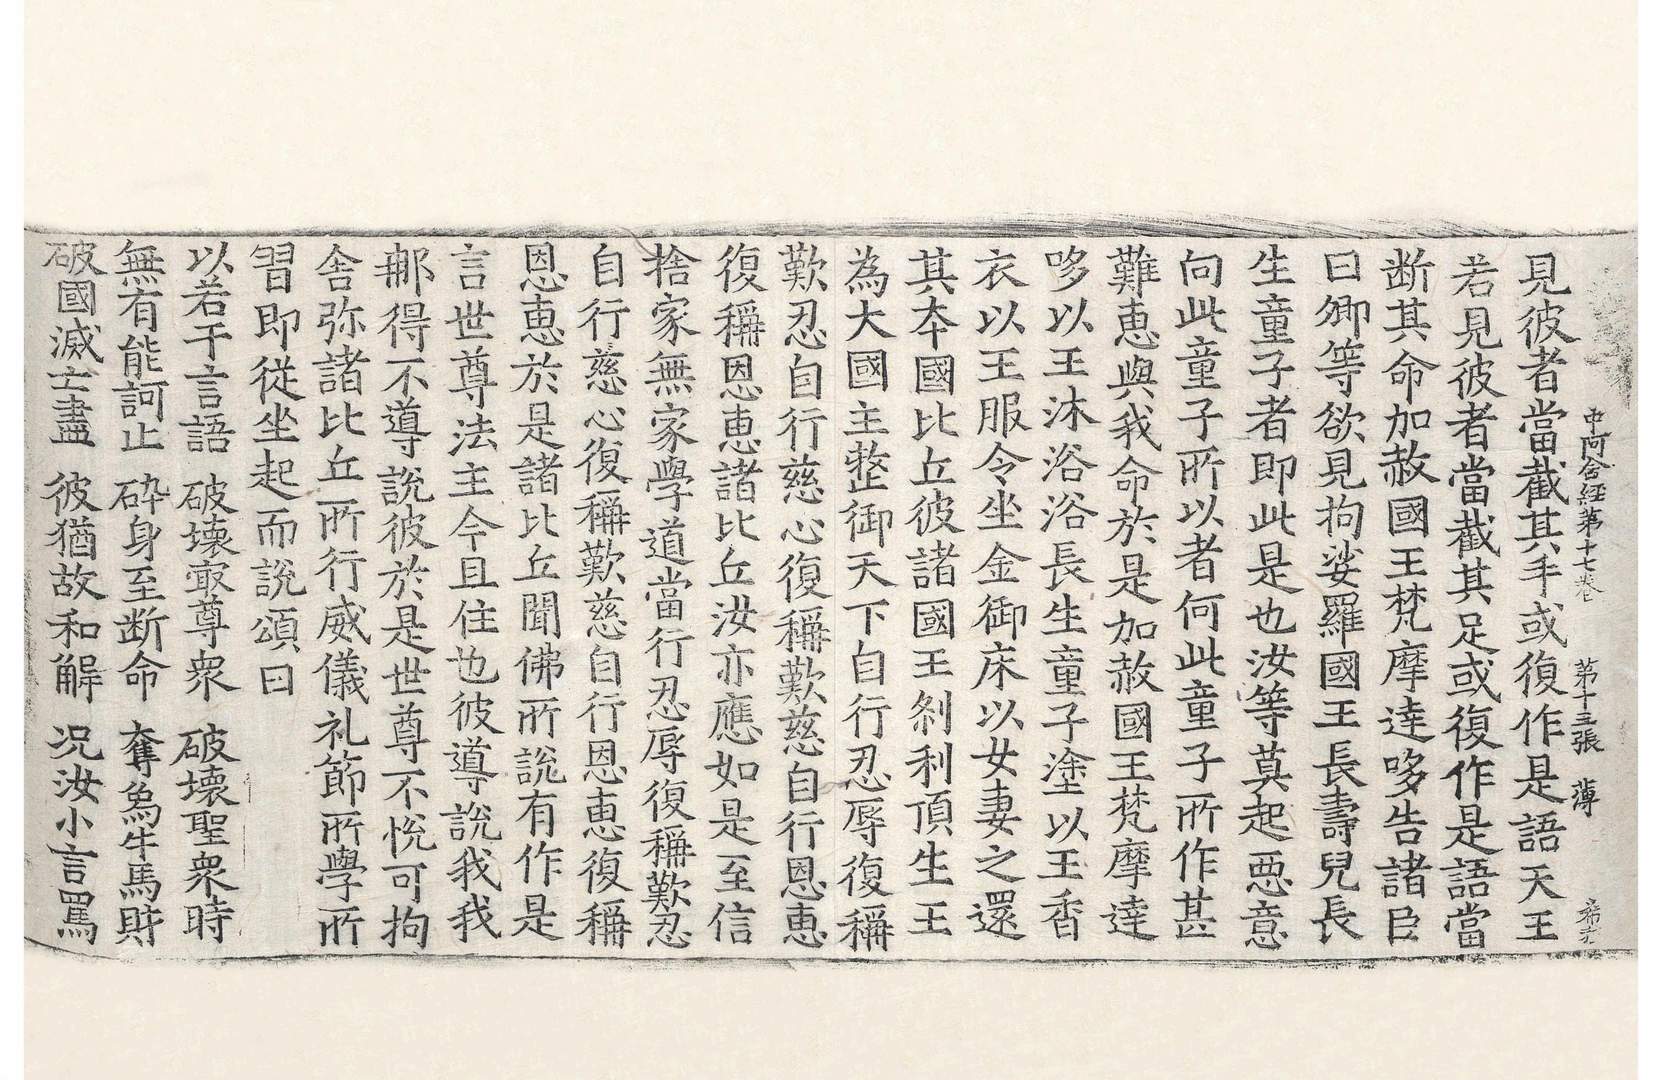 中阿含經第十七卷 第十三張 薄
見彼者當截其手或復作是語天王
若見彼者當截其足或復作是語當
斷其命加赦國王梵摩達哆告諸臣
曰卿等欲見拘娑羅國王長壽兒長
生童子者即此是也汝等莫起惡意
向此童子所以者何此童子所作甚
難惠與我命於是加赦國王梵摩達
哆以王沐浴浴長生童子塗以王香
衣以王服令坐金御床以女妻之還
其本國比丘彼諸國王剎利頂生王
為大國主整御天下自行忍辱復稱
歎忍自行慈心復稱歎慈自行恩惠
復稱恩惠諸比丘汝亦應如是至信
捨家無家學道當行忍辱復稱歎忍
自行慈心復稱歎慈自行恩惠復稱
恩惠於是諸比丘聞佛所說有作是
言世尊法主今且住也彼導說我我
那得不導說彼於是世尊不悅可拘
舍弥諸比丘所行威儀礼節所學所
習即從坐起而說頌曰
以若干言語 破壞最尊衆 破壞聖衆時
無有能訶止 碎身至断命 奪象牛馬財
破國滅亡盡 彼猶故和解 況汝小言罵